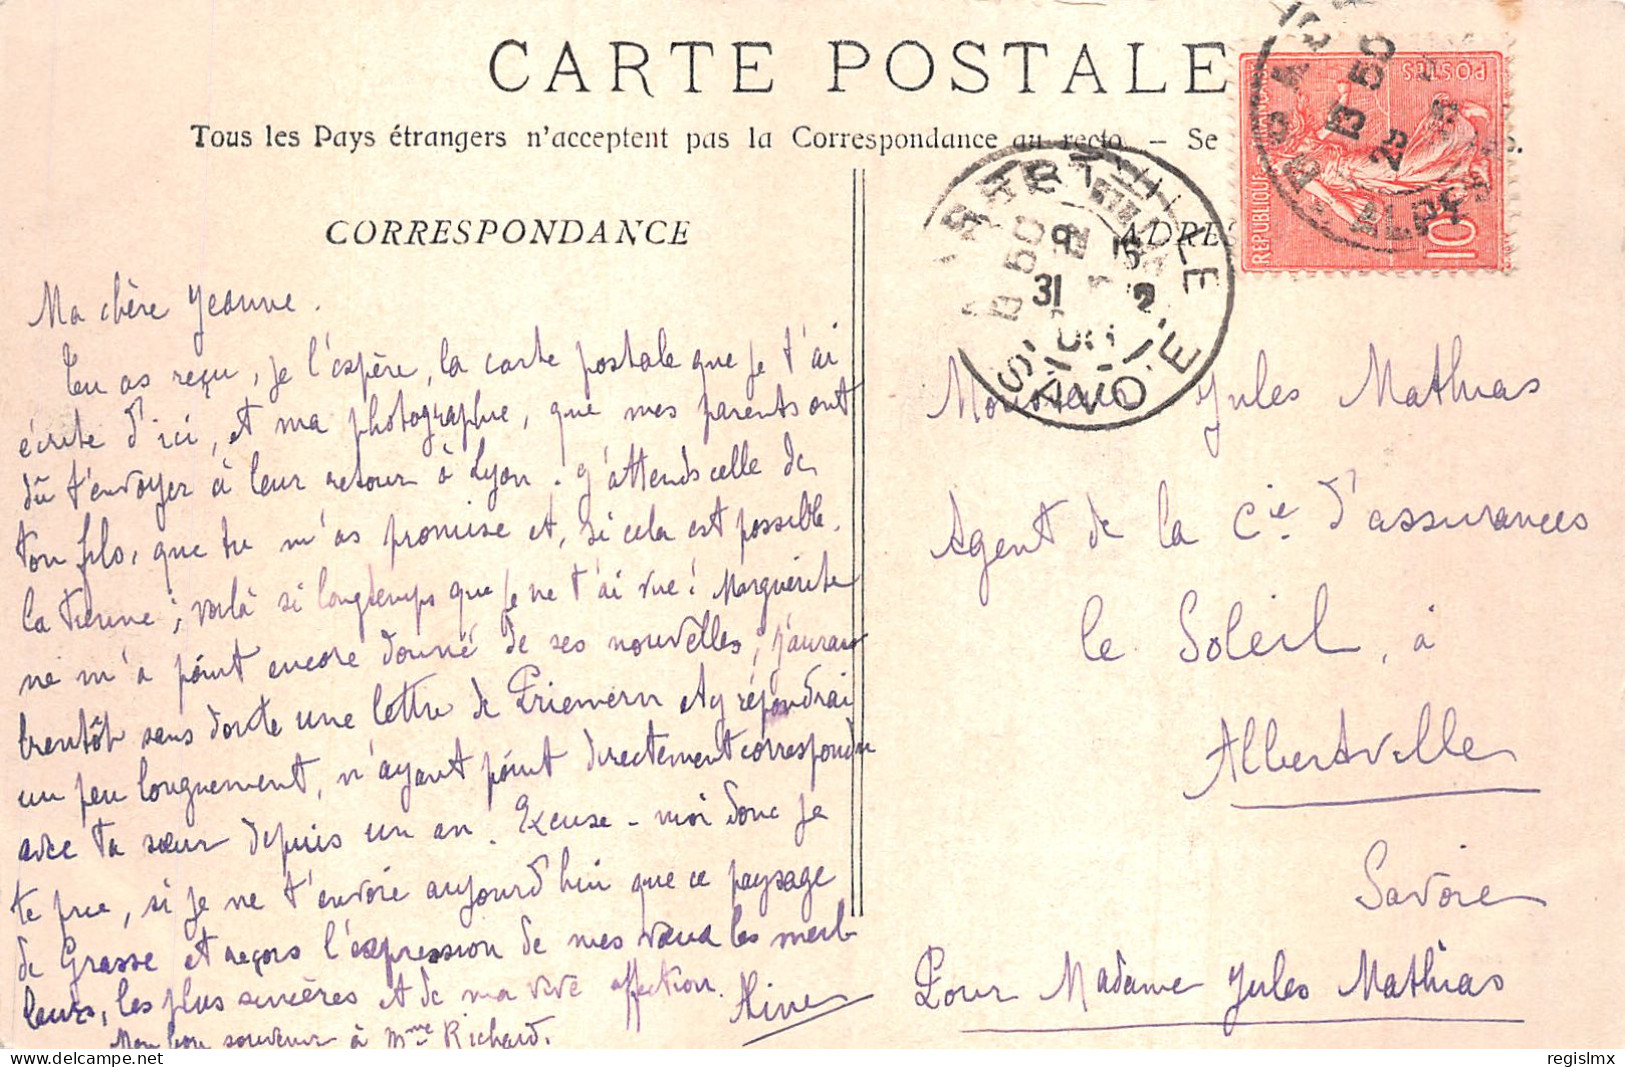 CARTE POSTALE
Tous les Pays étrangers n'acceptent pas la Correspondance au recto. — Se
CORRESPONDANCE
ADRES
Ma chère Jeanne.
Tu as reçu, je l'espère, la carte postale que je t'ai
écrite d'ici, et ma photographie, que mes parents ont
dû t'envoyer à leur retour à Lyon. J'attends celle de
ton fils, que tu m'as promise et, si cela est possible,
la tienne; voilà si longtemps que je ne t'ai vue! Marguerite
ne m'a point encore donné de ses nouvelles; j'aurai
bientôt sans doute une lettre de et y répondrai
un peu longuement, n'ayant point directement correspondu
avec ta sœur depuis un an. Excuse-moi donc je
te prie, si je ne t'envoie aujourd'hui que ce paysage
de Grasse et reçois l'expression de mes vœux les meil-
leurs, les plus sincères et de ma vive affection.
Mon bon souvenir à Mme Richard.
Monsieur Jules Mathias
Agent de la Cie d'assurances
le Soleil, à
Albertville
Savoie
Pour Madame Jules Mathias
REPUBLIQUE FRANCAISE
POSTES
10
ALBERTVILLE
SAVOIE
31
regislmx